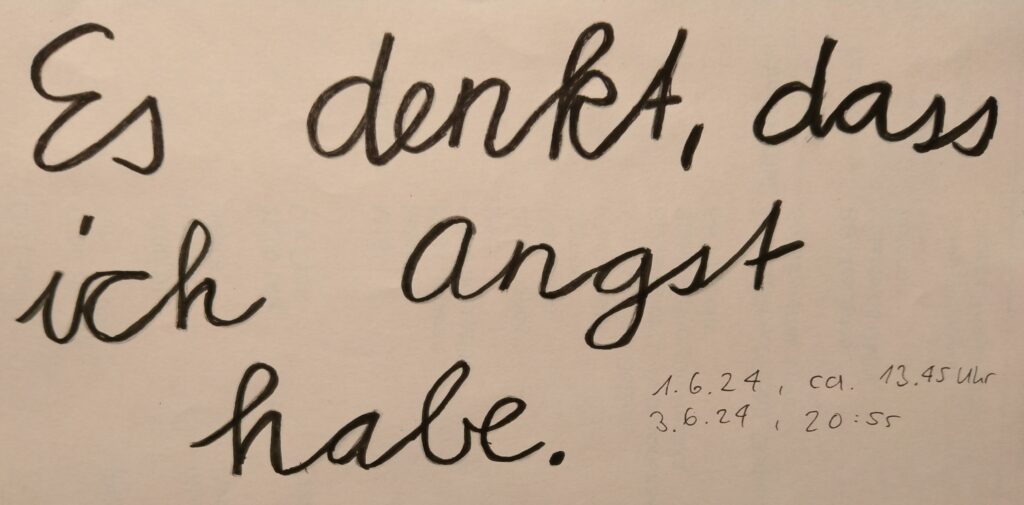 Es denkt, dass
ich Angst
habe.
1.6.24, ca. 13.45 Uhr
3.6.24, 20:55